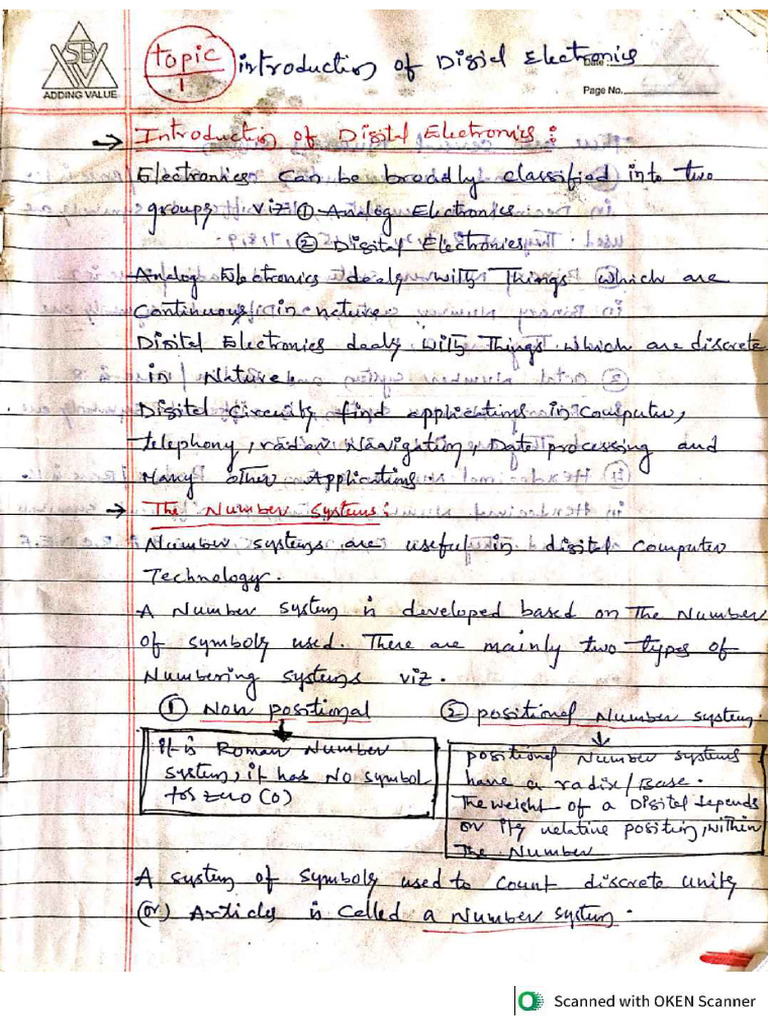 SBV
ADDING VALUE
Topic 1
introduction of Digital Electronics
Date
Page No.
→ Introduction of Digital Electronics :
Electronics can be broadly classified into two
groups viz ① Analog Electronics
② Digital Electronics
Analog Electronics deals with Things which are
Continuous in nature
Digital Electronics deals with Things which are discrete
in Nature
Digital Circuits find applications in Computer,
telephony, radar Navigation, Data processing and
Many other Applications
→ The Number Systems:
Number systems are useful in digital Computer
Technology.
A Number system is developed based on The Number
of symbols used. There are mainly two types of
Numbering systems viz.
① Non positional
② positional Number system.
it is Roman Number
system, it has No symbol
for zero (0)
positional Number systems
have a radix/Base.
The weight of a Digital depends
on its relative position, within
The Number
A system of symbols used to count discrete units
(or) Articles is called a Number system.
Scanned with OKEN Scanner